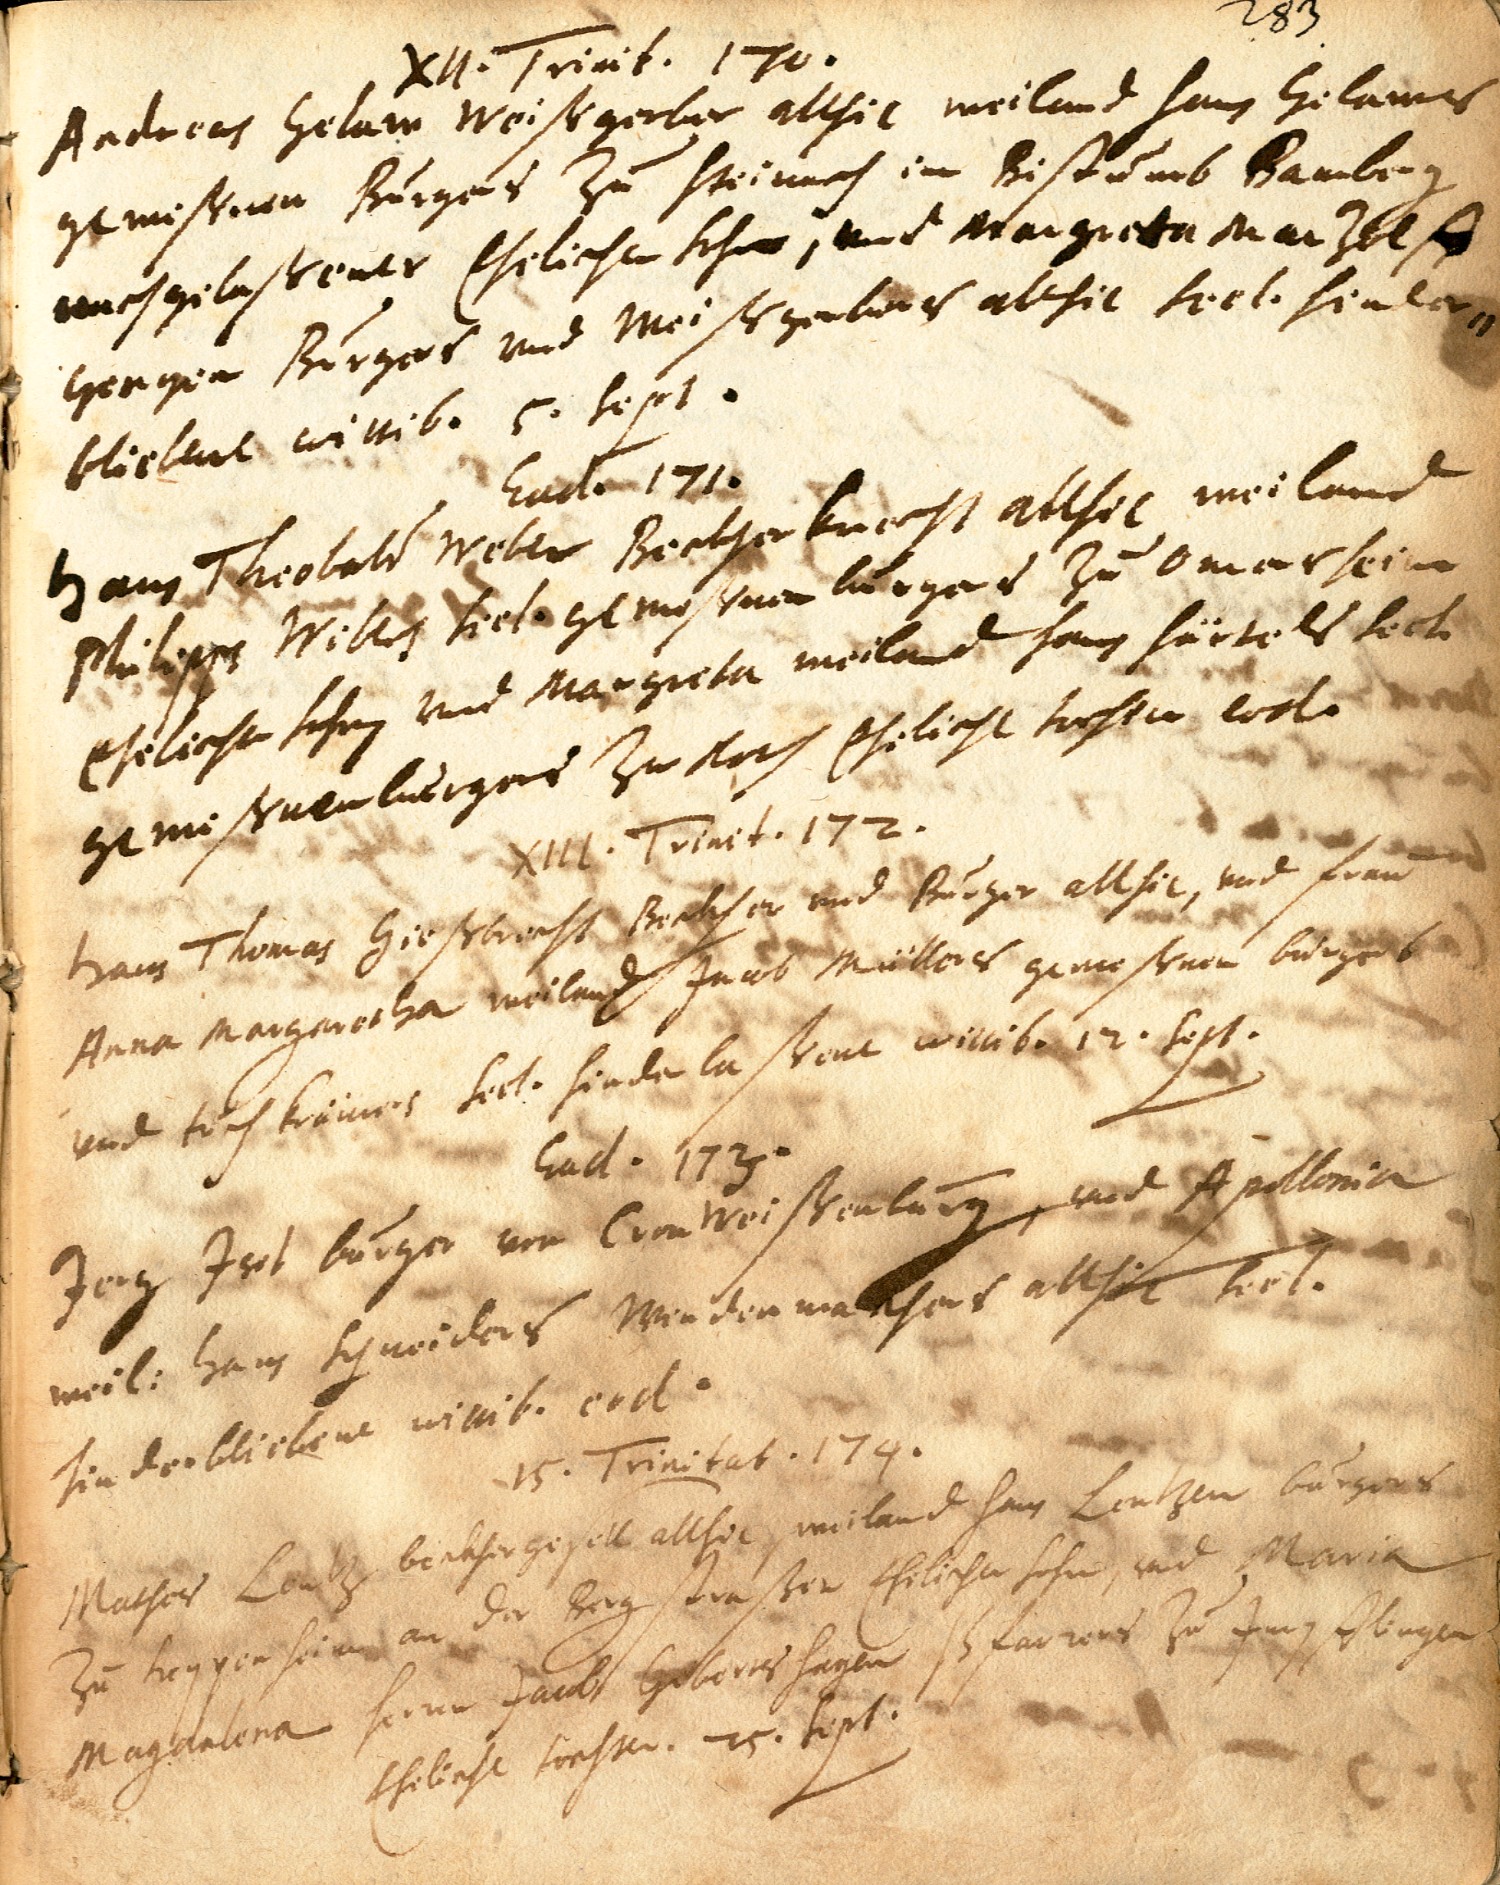 283
XII. Trinit. 170.
Andreas Gelarn Weißgerber allhie weiland Hans Gelarns
gewesßnen Burgers Zu Steinach im Bistumb Bamberg
nachgelaßener Ehelicher Sohn, und Margreta Marzolf
Georgen Burgers und Weißgerbers allhie seel. hinder"
bliebene wittib. 5. Sept.
Ead. 171.
Hans Theobald Weber Beckherknecht allhie weiland
Philipps Webers seel. geweßnen burgers Zu Omersheim
Ehelicher Sohn und Margreta weiland Hans Härtels seel.
geweßnen burgers Zu Ehelich tochter eod.
XIII. Trinit. 172.
Hans Thomas Gießbrecht Beckher und Burger allhie, und frau
Anna Margaretha weiland Jacob Müllers geweßnen burgers
und tuchkrämers seel. hinderlaßene wittib. 12. Sept.
Ead. 173.
Jerg burger von CronWeißenburg, und Apollonia
weil: Hans Schneiders Windenmachers allhie seel.
hinderbliebene wittib. eod.
15. Trinitat. 174.
Mathes Lentz beckhergesell allhie, weiland Hans Lentzen burgers
Zu heppenheim an der Bergstraßen Ehelicher Sohn, und Maria
Magdalena herrn Jacob Pfarrers Zu
Eheliche tochter. 25. Sept.